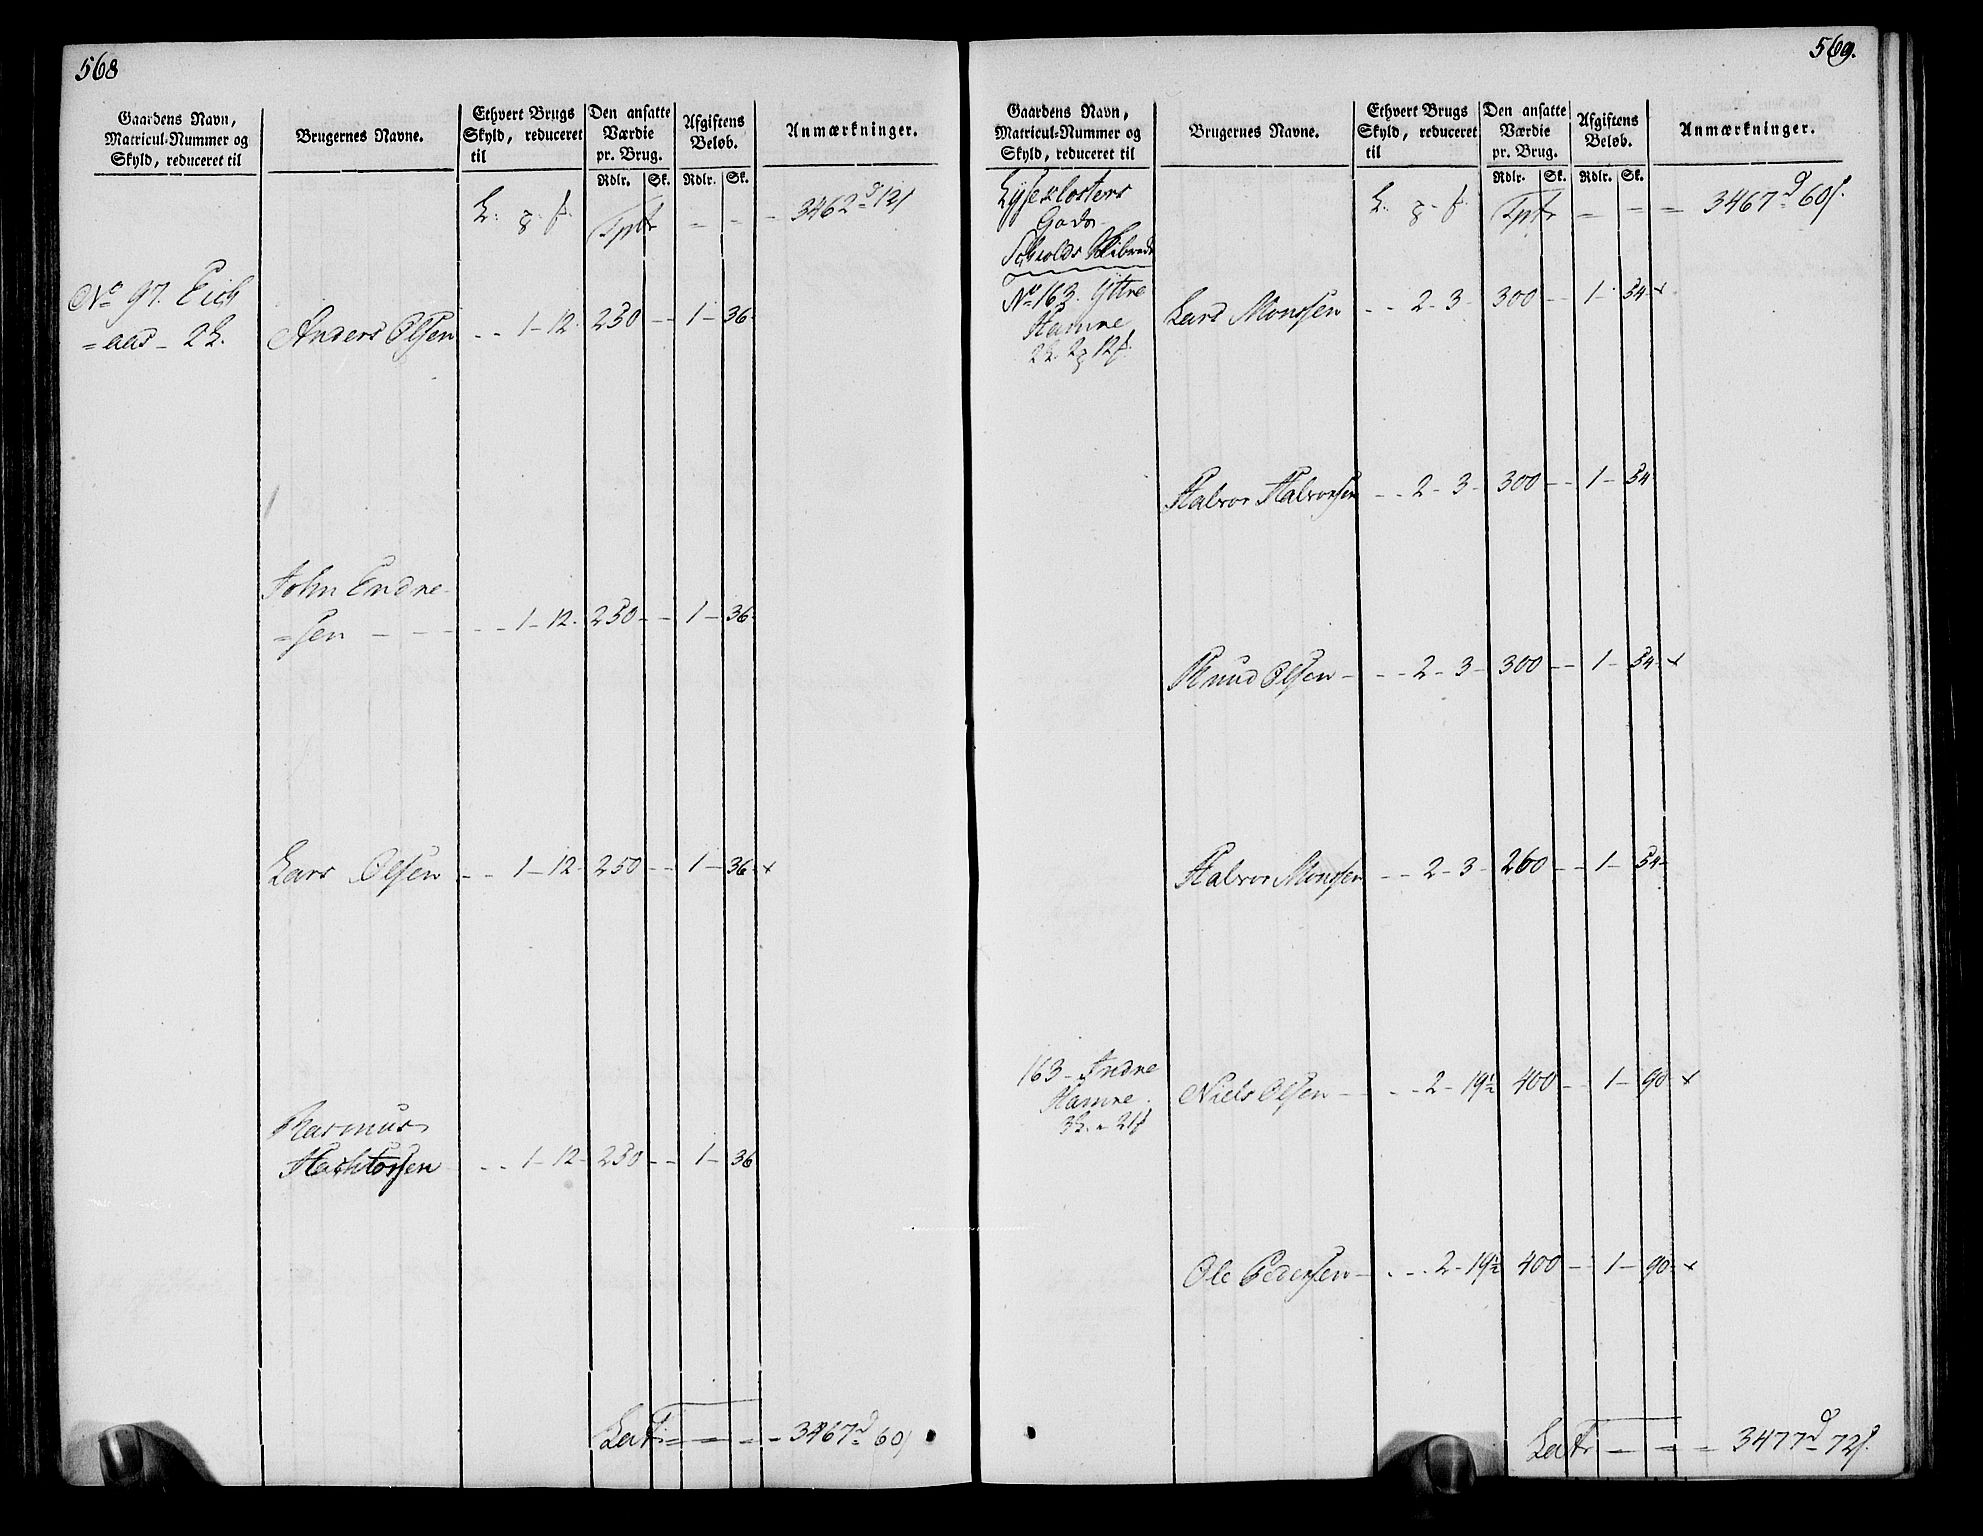 568
Gaardens Navn,
Matricul-Nummer og
Skyld, reduceret til
Brugernes Navne.
Ethvert Brugs
Skyld, reduceret
til
Den ansatte
Værdie
pr. Brug.
Afgiftens
Beløb.
Anmærkninger.
Rdlr. Sk. Rdlr. Sk.
Tptr - - - 3462 d 12 s
No 97. Eich
=aas - 2 L. Anders Olsen - - 1 - 12. 250 - - 1 - 36.
John Endre-
=sen - - - - - 1 - 12. 250 - - 1 - 36.
Lars Olsen - - 1 - 12. 250 - - 1 - 36 - x
Rasmus
- - 1 - 12 - 250 - - 1 - 36
Latr = - - - 3467 d 60 s
569.
Gaardens Navn,
Matricul-Nummer og
Skyld, reduceret til
Brugernes Navne.
Ethvert Brugs
Skyld, reduceret
til
Den ansatte
Værdie
pr. Brug.
Afgiftens
Beløb.
Anmærkninger.
Rdlr. Sk. Rdlr. Sk.
Lyseclosters
Gods
Tptr = - = 3467 d 60 s.
No 163. Yttre
Hamre
Lars Monssen - - 2 - 3 - 300 - - 1 - 54 - x
Halvor Halvorsen - - 2 - 3 - 300 - - 1 - 54
Knud Olsen - - - 2 - 3 - 300 - - 1 - 54 - x
Halvor Monssen - - 2 - 3 - 260 - - 1 - 54 -
163 - Indre
Hamre.
Niels Olsen - - - 2 - 19½ 400 - - 1 - 90 - x
Ole Pedersen - - - 2 - 19½ 400 - - 1 - 90 - x
Latr - - = 3477 d 72 s.